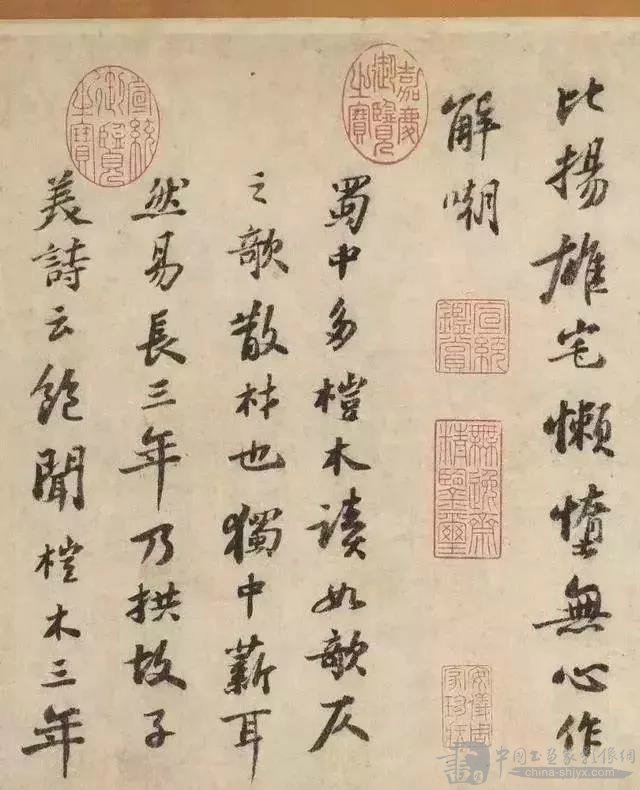 比揚雄宅懶惰無心作
解嘲
嘉慶御覽之寶
宣統鑑賞
無逸齋精鑒璽
安儀周家珍藏
蜀中多榿木讀如欹仄
之欹散材也獨中薪耳
然易長三年乃拱故子
美詩云飽聞榿木三年
宣統御覽之寶
中国书画家影像網
china-shjyx.com